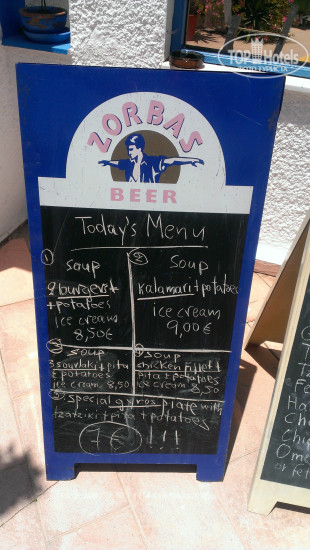 TOPHotels
ZORBAS
BEER
Today's Menu
1
soup
2 bourgers+
+potatoes
ice cream
8,50€
2
soup
kalamari+potatoes
ice cream
9,00€
3
soup
3 souvlaki+pita
potatoes
ice cream 8,50
4 soup
chicken fillet+
pita potatoes
ice cream 8,50
5 special gyros plate with
tzatziki+pita+potatoes
7€ !!!